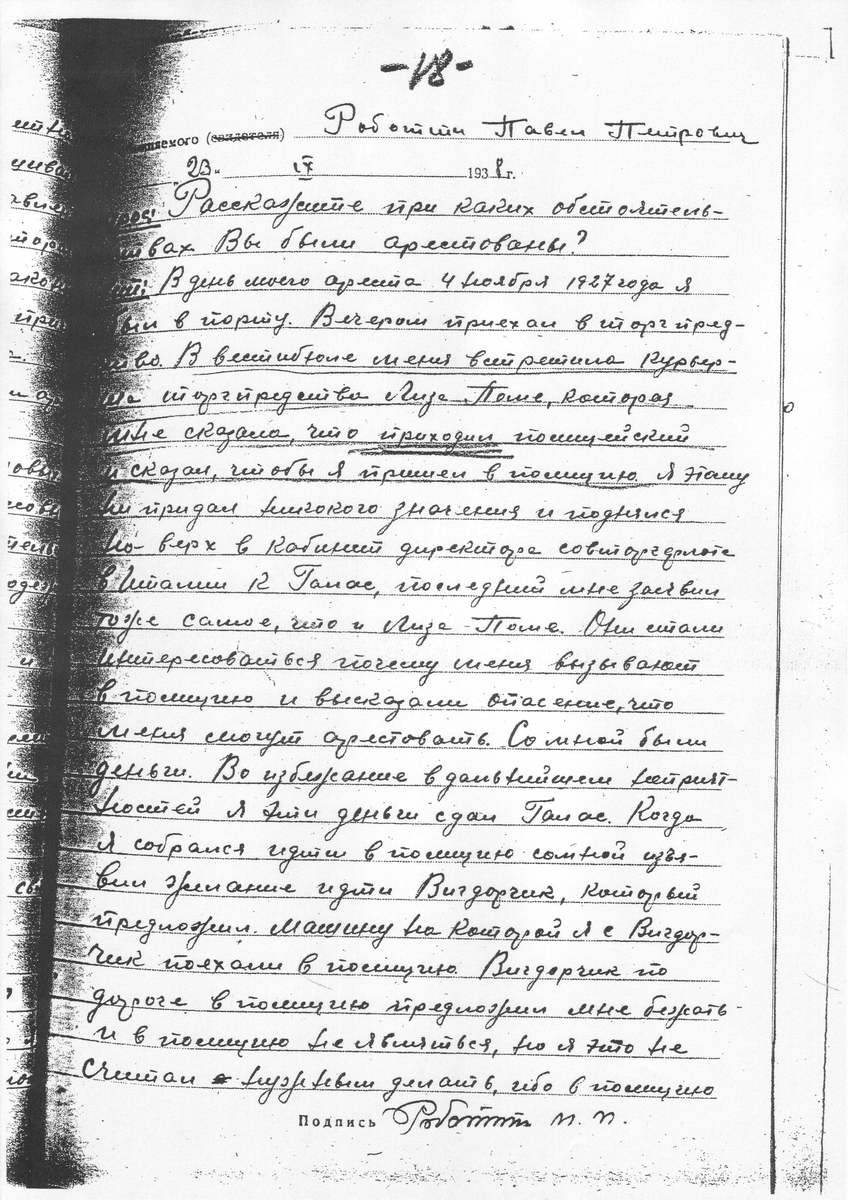 -18-
няемого (свидетеля) Роботти Павел Петрович
"23" IX 1938 г.
рос: Расскажите при каких обстоятель-
ствах Вы были арестованы?
ет: В день моего ареста 4 ноября 1927 года я
был в порту. Вечером приехал в торгпред-
ство. В вестибюле меня встретила курьер-
ша торгпредства Лиза Поме, которая
мне сказала, что приходил полицейский
и сказал, чтобы я пришел в полицию. Я этому
не придал никакого значения и поднялся
на верх в кабинет директора совторгфлота
в Италии к Галас, последний мне заявил
тоже самое, что и Лиза Поме. Они стали
интересоваться почему меня вызывают
в полицию и высказали опасение, что
меня могут арестовать. Со мной были
деньги. Во избежание в дальнейшем неприят-
ностей я эти деньги сдал Галас. Когда
я собрался идти в полицию со мной изъя-
вил желание идти Вигдорчик, который
предложил машину на которой я с Вигдор-
чик поехали в полицию. Вигдорчик по
дороге в полицию предложил мне бежать
и в полицию не являться, но я это не
считал нужным делать, ибо в полицию
Подпись Роботти П. П.